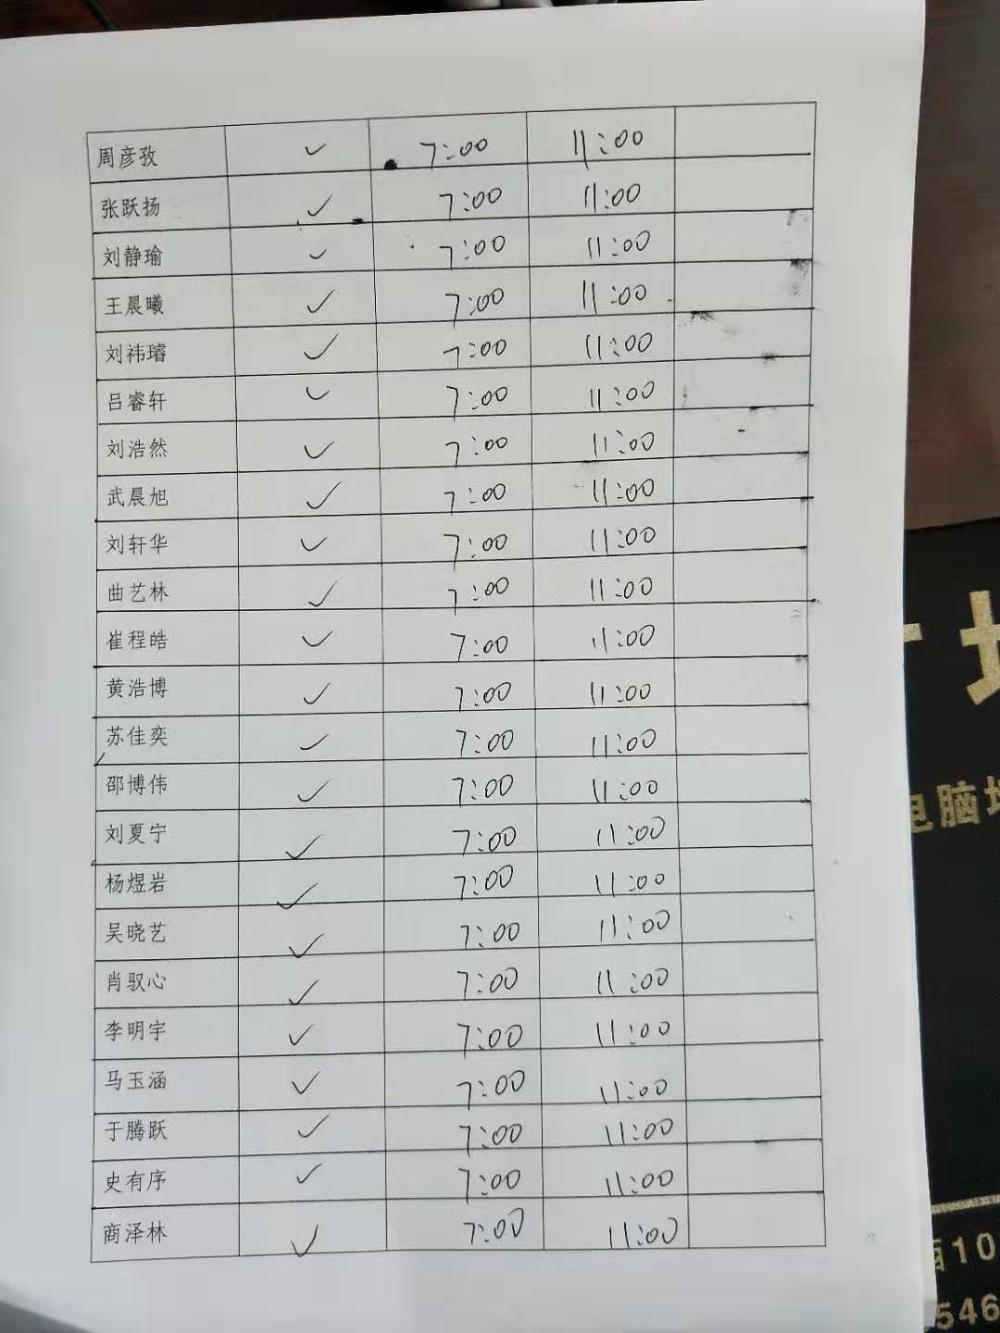 周彦孜 ✓ 7:00 11:00
张跃扬 ✓ 7:00 11:00
刘静瑜 ✓ 7:00 11:00
王晨曦 ✓ 7:00 11:00
刘祎璿 ✓ 7:00 11:00
吕睿轩 ✓ 7:00 11:00
刘浩然 ✓ 7:00 11:00
武晨旭 ✓ 7:00 11:00
刘轩华 ✓ 7:00 11:00
曲艺林 ✓ 7:00 11:00
崔程皓 ✓ 7:00 11:00
黄浩博 ✓ 7:00 11:00
苏佳奕 ✓ 7:00 11:00
邵博伟 ✓ 7:00 11:00
刘夏宁 ✓ 7:00 11:00
杨煜岩 ✓ 7:00 11:00
吴晓艺 ✓ 7:00 11:00
肖驭心 ✓ 7:00 11:00
李明宇 ✓ 7:00 11:00
马玉涵 ✓ 7:00 11:00
于腾跃 ✓ 7:00 11:00
史有序 ✓ 7:00 11:00
商泽林 ✓ 7:00 11:00
电脑
10
546